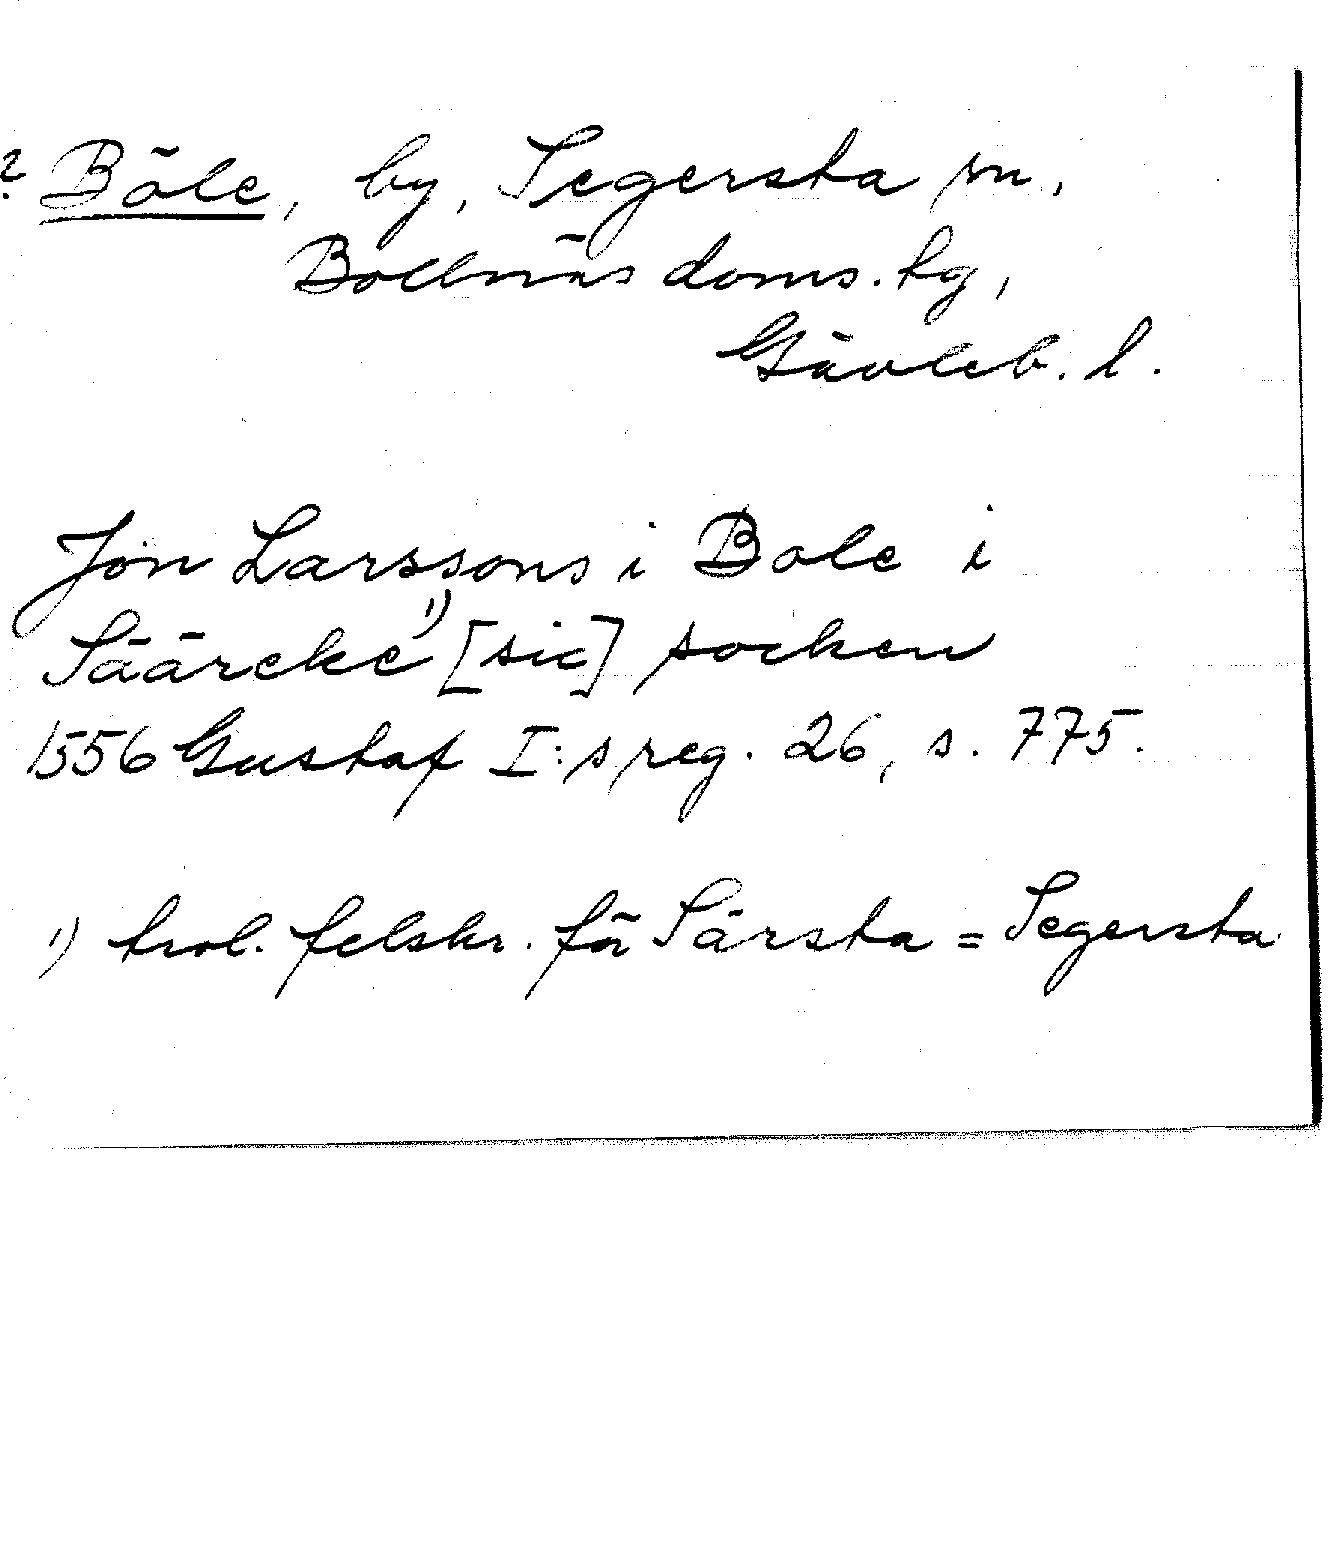 ? Böle, by, Segersta sn,
Bollnäs doms. hg,
Gävleb. l.
Jon Larssons i Bole i
Säärcke¹⁾ [sic] socken
1556 Gustaf I:s reg. 26, s. 775.
1) trol. felskr. för Särsta = Segersta